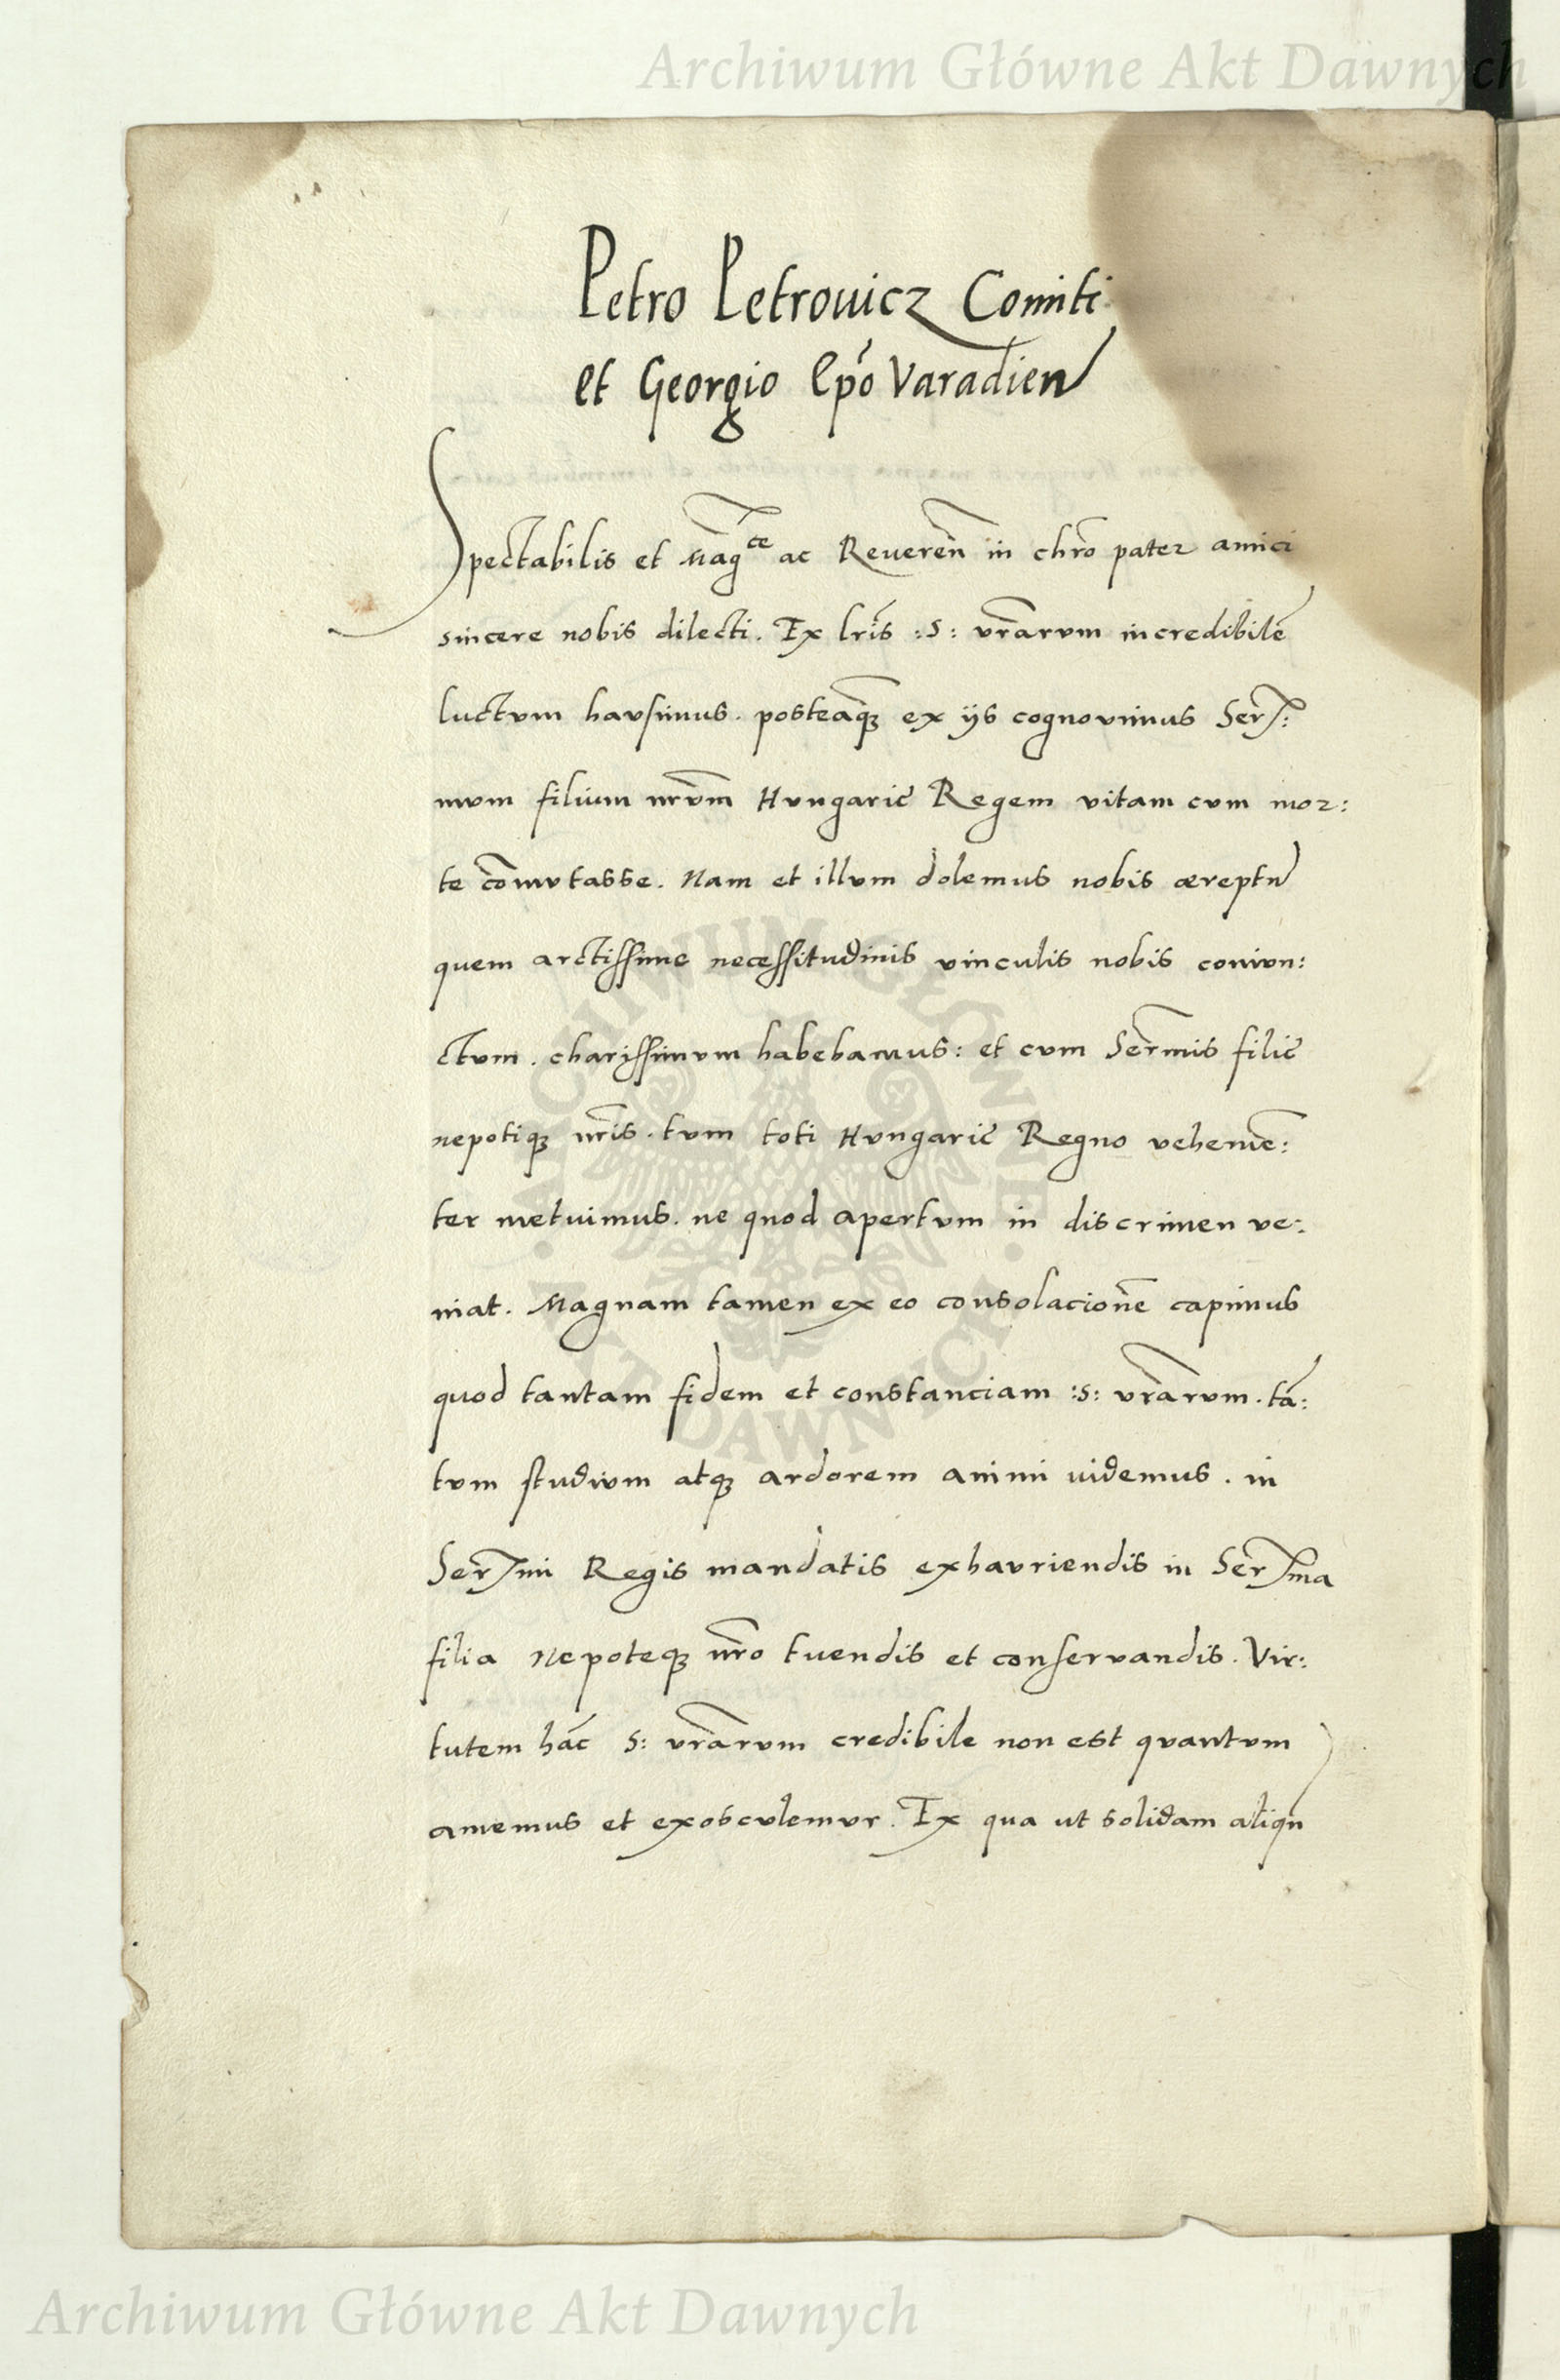 Archiwum Główne Akt Dawnych
Petro Petrouicz Comiti
et Georgio Epō Varadien
Spectabilis et Mag̃ce ac Reueren̄ in chr̄o pater amici
sincere nobis dilecti. Ex lr̄is :S: vr̄arvm incredibilē
luctvm havsimus. posteaq̃ꝫ ex ijs cognovimus Ser:
mvm filium nr̄vm Hvngarię Regem vitam cvm mor:
te com̄vtasse. Nam et illvm dolemus nobis ęreptū
quem arctissimę necessitudinis vinculis nobis conivn:
ctvm. charissimvm habebamus: et cvm Ser̄mis filię
nepotiqꝫ nr̄is. tvm toti Hvngarię Regno vehemē:
ter metuimus. ne quod apertvm in discrimen ve:
niat. Magnam tamen ex eo consolacionē capimus
quod tantam fidem et constanciam :s: vr̄arvm. tā:
tvm studivm atqꝫ ardorem animi uidemus. in
Sermi Regis mandatis exhavriendis in Serma
filia Nepoteqꝫ nr̄o tuendis et conservandis. Vir:
tutem hāc S: vr̄arvm credibile non est qvantvm
amemus et exoscvlemvr. Ex qua ut solidam aliqn̄
ARCHIWUM GŁÓWNE AKT DAWNYCH
Archiwum Główne Akt Dawnych